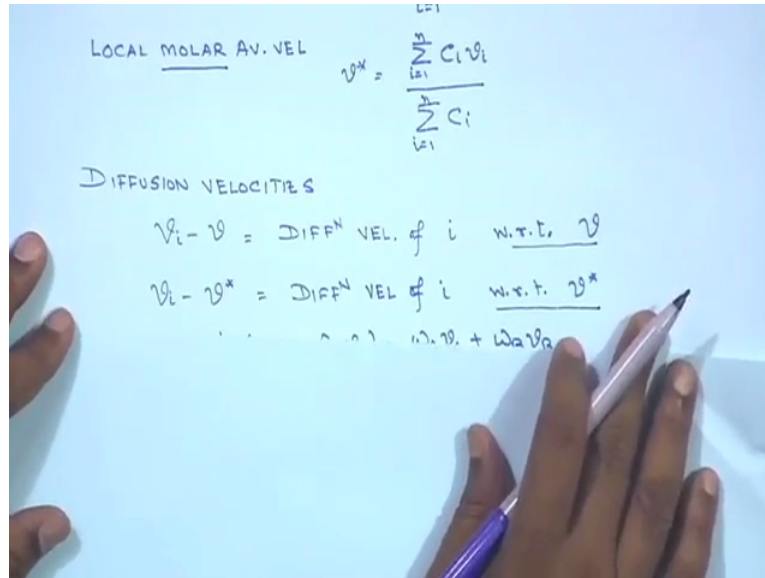 i=1
LOCAL MOLAR AV. VEL v* = \frac{\sum_{i=1}^{n} C_i v_i}{\sum_{i=1}^{n} C_i}
DIFFUSION VELOCITIES
v_i - v = DIFF^N VEL. of i w.r.t. v
v_i - v* = DIFF^N VEL of i w.r.t. v*
+ ω_B v_B